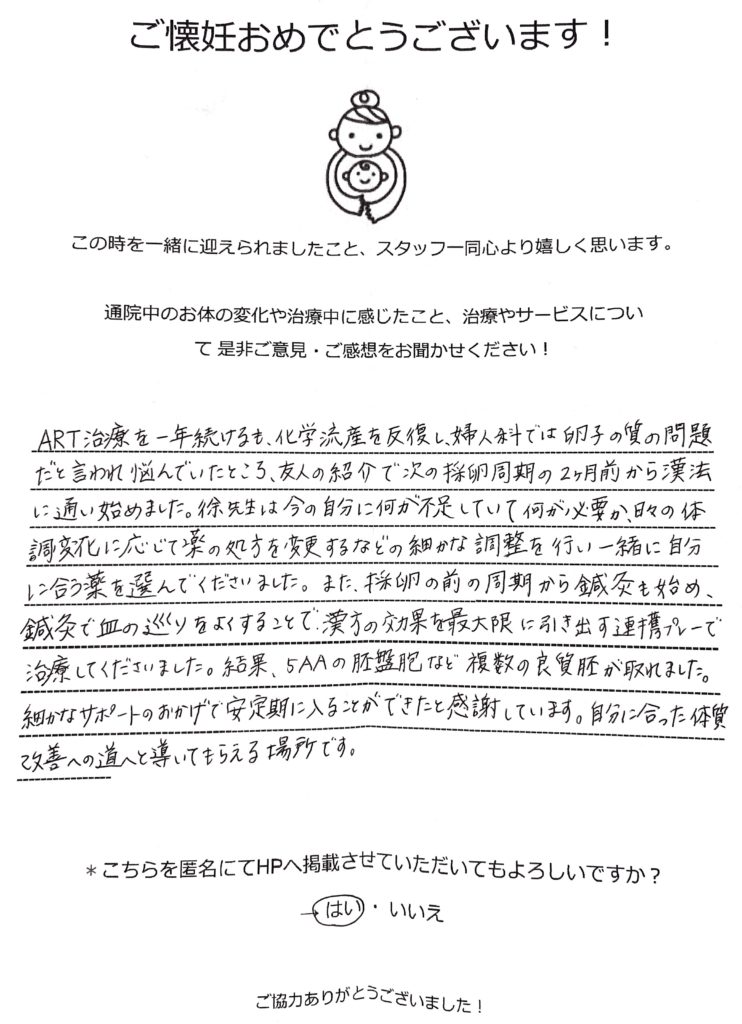 ご懐妊おめでとうございます！
この時を一緒に迎えられましたこと、スタッフ一同心より嬉しく思います。
通院中のお体の変化や治療中に感じたこと、治療やサービスについ
て 是非ご意見・ご感想をお聞かせください！
ART治療を一年続けるも、化学流産を反復し、婦人科では卵子の質の問題
だと言われ悩んでいたところ、友人の紹介で次の採卵周期の2ヶ月前から漢法
に通い始めました。徐先生は今の自分に何が不足していて何が必要か、日々の体
調変化に応じて薬の処方を変更するなどの細かな調整を行い一緒に自分
に合う薬を選んでくださいました。また、採卵の前の周期から鍼灸も始め、
鍼灸で血の巡りをよくすることで漢方の効果を最大限に引き出す連携プレーで
治療してくださいました。結果、5AAの胚盤胞など複数の良質胚が取れました。
細かなサポートのおかげで安定期に入ることができたと感謝しています。自分に合った体質
改善への道へと導いてもらえる場所です。
＊こちらを匿名にてHPへ掲載させていただいてもよろしいですか？
→はい・いいえ
ご協力ありがとうございました！